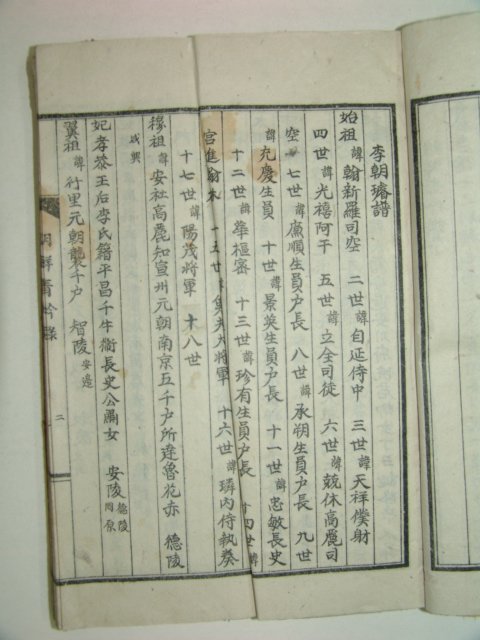 李朝璿譜
始祖 諱翰新羅司空 二世 諱自延侍中 三世 諱天祥僕射
四世 諱光禧阿干 五世 諱立全司徒 六世 諱兢休高麗司
空 七世 諱廉順生員戶長 八世 諱承朔生員戶長 九世
諱充慶生員 十世 諱景英生員戶長 十一世 諱忠敏長史
十二世 諱華樞密 十三世 諱珍有生員戶長 十四世 諱
宮進 十五世 大將軍 十六世 諱璘內侍執奏
十七世 諱陽茂將軍 十八世
穆祖 諱安社高麗知宜州元朝南京五千戶所達魯花赤 德陵
咸興
妃孝恭王后李氏籍平昌千牛衛長史公肅女 安陵 德陵同原
翼祖 諱行里元朝襲千戶 智陵 安邊
朝鮮青衿錄 二